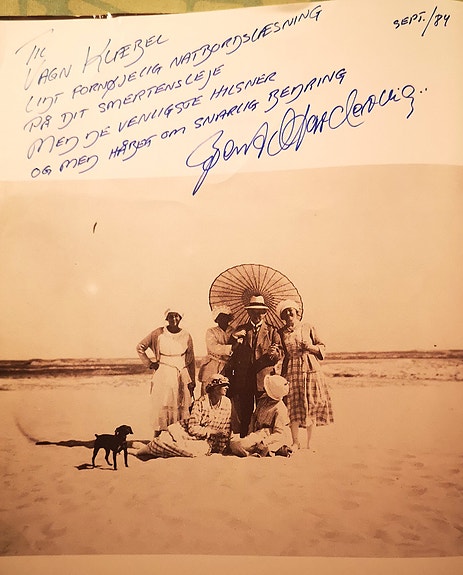 TIL
VAGN KLÆBEL
LIDT FORNØJELIG NATBORDSLÆSNING
PÅ DIT SMERTENSLEJE
MED DE VENLIGSTE HILSNER
OG MED HÅBET OM SNARLIG BEDRING
SEPT./84